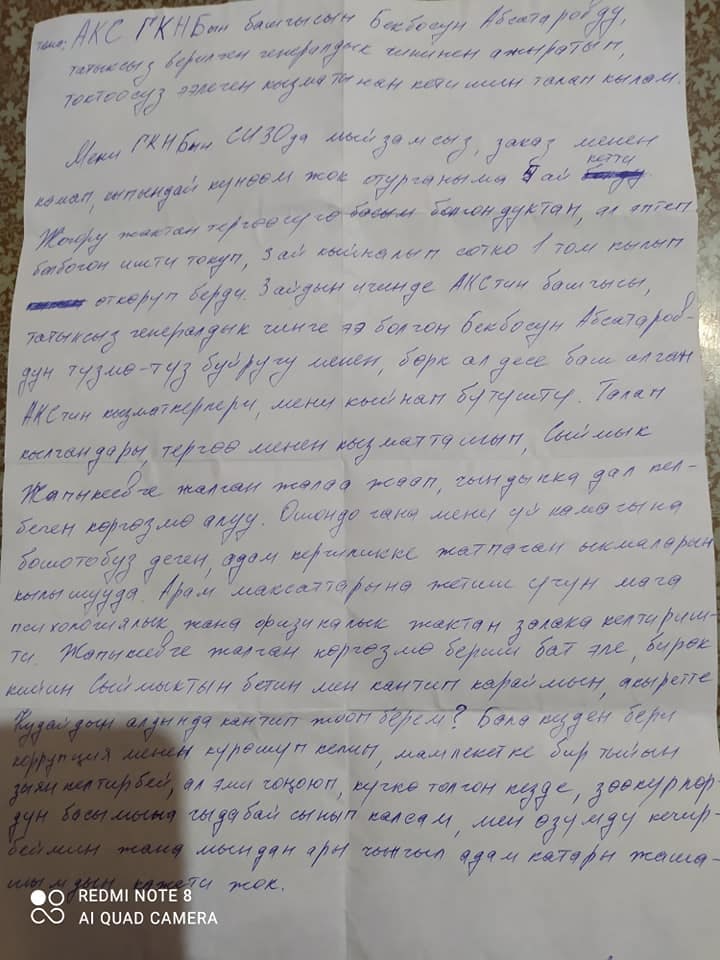 тана; АКС ГКНБнын башчысын Бекбосун Абсатаровду,
татыксыз берилген генералдык чининен ажыратып,
токтоосуз ээлеген кызматынан кетишин талап кылам.
Мени ГКНБын СИЗОда мыйзамсыз, заказ менен
камап, кыпындай күнөөм жок отурганыма 5 ай кетти
Жогору жактан тергөөчүгө басым болгондуктан, ал эптеп
болбогон ишти токуп, 3 ай кыйналып сотко 1 том кылып
өткөрүп берди. 3 айдын ичинде АКСтин башчысы,
татыксыз генералдык чинге ээ болгон Бекбосун Абсатаров-
дун түзмө-түз буйругу менен, бөрк ал десе баш алган
АКСтин кызматкерлери, мени кыйнап бүтүштү. Талап
кылгандары, тергөө менен кызматташып, Сыймык
Жапыкеевге жалган жалаа жаап, чындыкка дал кел-
беген көргөзмө алуу. Ошондо гана мени үй камагына
бошотобуз деген, адам керчиликке жатпаган ыкмаларын
кылышууда. Арам максаттарына жетиш үчүн мага
психологиялык жана физикалык жактан залака келтириш-
ти. Жапыкеевге жалган көргөзмө бериш бат эле, бирок
кийин Сыймыктын бетин мен кантип караймын, акыретте
Кудайдын алдында кантип жооп берем? Бала кезден бери
коррупция менен күрөшүп келип, мамлекетке бир тыйын
зыян келтирбей, ал эми чоңоюп, күчкө толгон кезде, зөөкүрлөр-
дүн басымына чыдабай сынып калсам, мен өзүмдү кечир-
беймин жана мындан ары чыңчыл адам катары жаша-
шымдын кажети жок.
REDMI NOTE 8
AI QUAD CAMERA